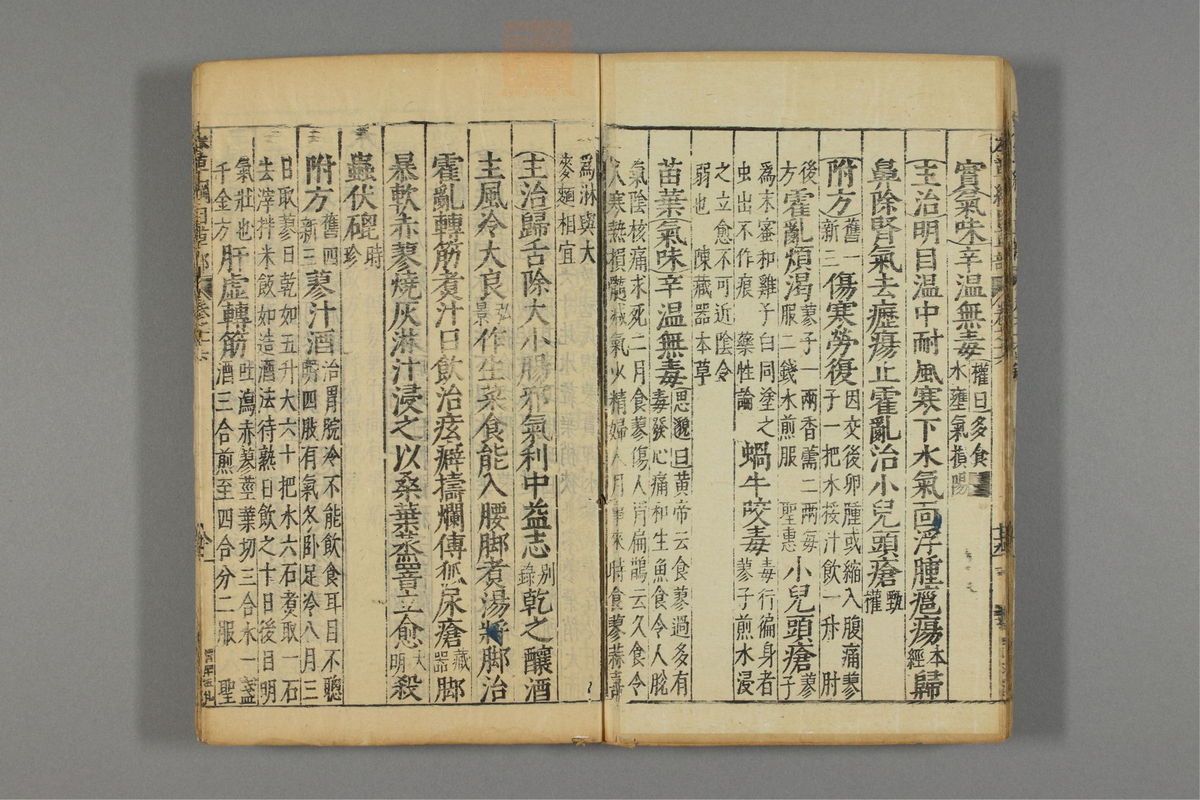 實氣味辛溫無毒權曰多食
水壅氣損陽
主治明目溫中耐風寒下水氣面浮腫癰瘍本經歸
鼻除腎氣去癧瘍止霍亂治小兒頭瘡甄權
附方舊一新三傷寒勞復因交後卵腫或縮入腹痛蓼
子一把水挼汁飲一升 肘
後方霍亂煩渴蓼子一兩香薷二兩每
服二錢水煎服 聖惠小兒頭瘡蓼子
為末蜜和雞子白同塗之
虫出不作痕 藥性論蝸牛咬毒毒行徧身者
蓼子煎水浸
之立愈不可近陰令
弱也 陳藏器本草
苗葉氣味辛溫無毒思邈曰黃帝云食蓼過多有
毒發心痛和生魚食令人脫
氣陰核痛求死二月食蓼傷人胃扁鵲云久食令
人寒熱損髓減氣少精婦人月事來時食蓼蒜喜
為淋與大
麥麵相宜
主治歸舌除大小腸邪氣利中益志別錄乾之釀酒
主風冷大良弘景作生菜食能入腰脚煮湯將脚治
霍亂轉筋煮汁日飲治痃癖擣爛傅狐尿瘡藏器脚
暴軟赤蓼燒灰淋汁浸之以桑葉蒸罯立愈大明殺
蟲伏砒時珍
附方舊四新三蓼汁酒治胃脘冷不能飲食耳目不聰
明四肢有氣冬卧足冷八月三
日取蓼日乾如五升大六十把水六石煮取一石
去滓拌米飯如造酒法待熟日飲之十日後目明
氣壯也
千金方肝虛轉筋吐瀉赤蓼莖葉切三合水一盞
酒三合煎至四合分二服 聖